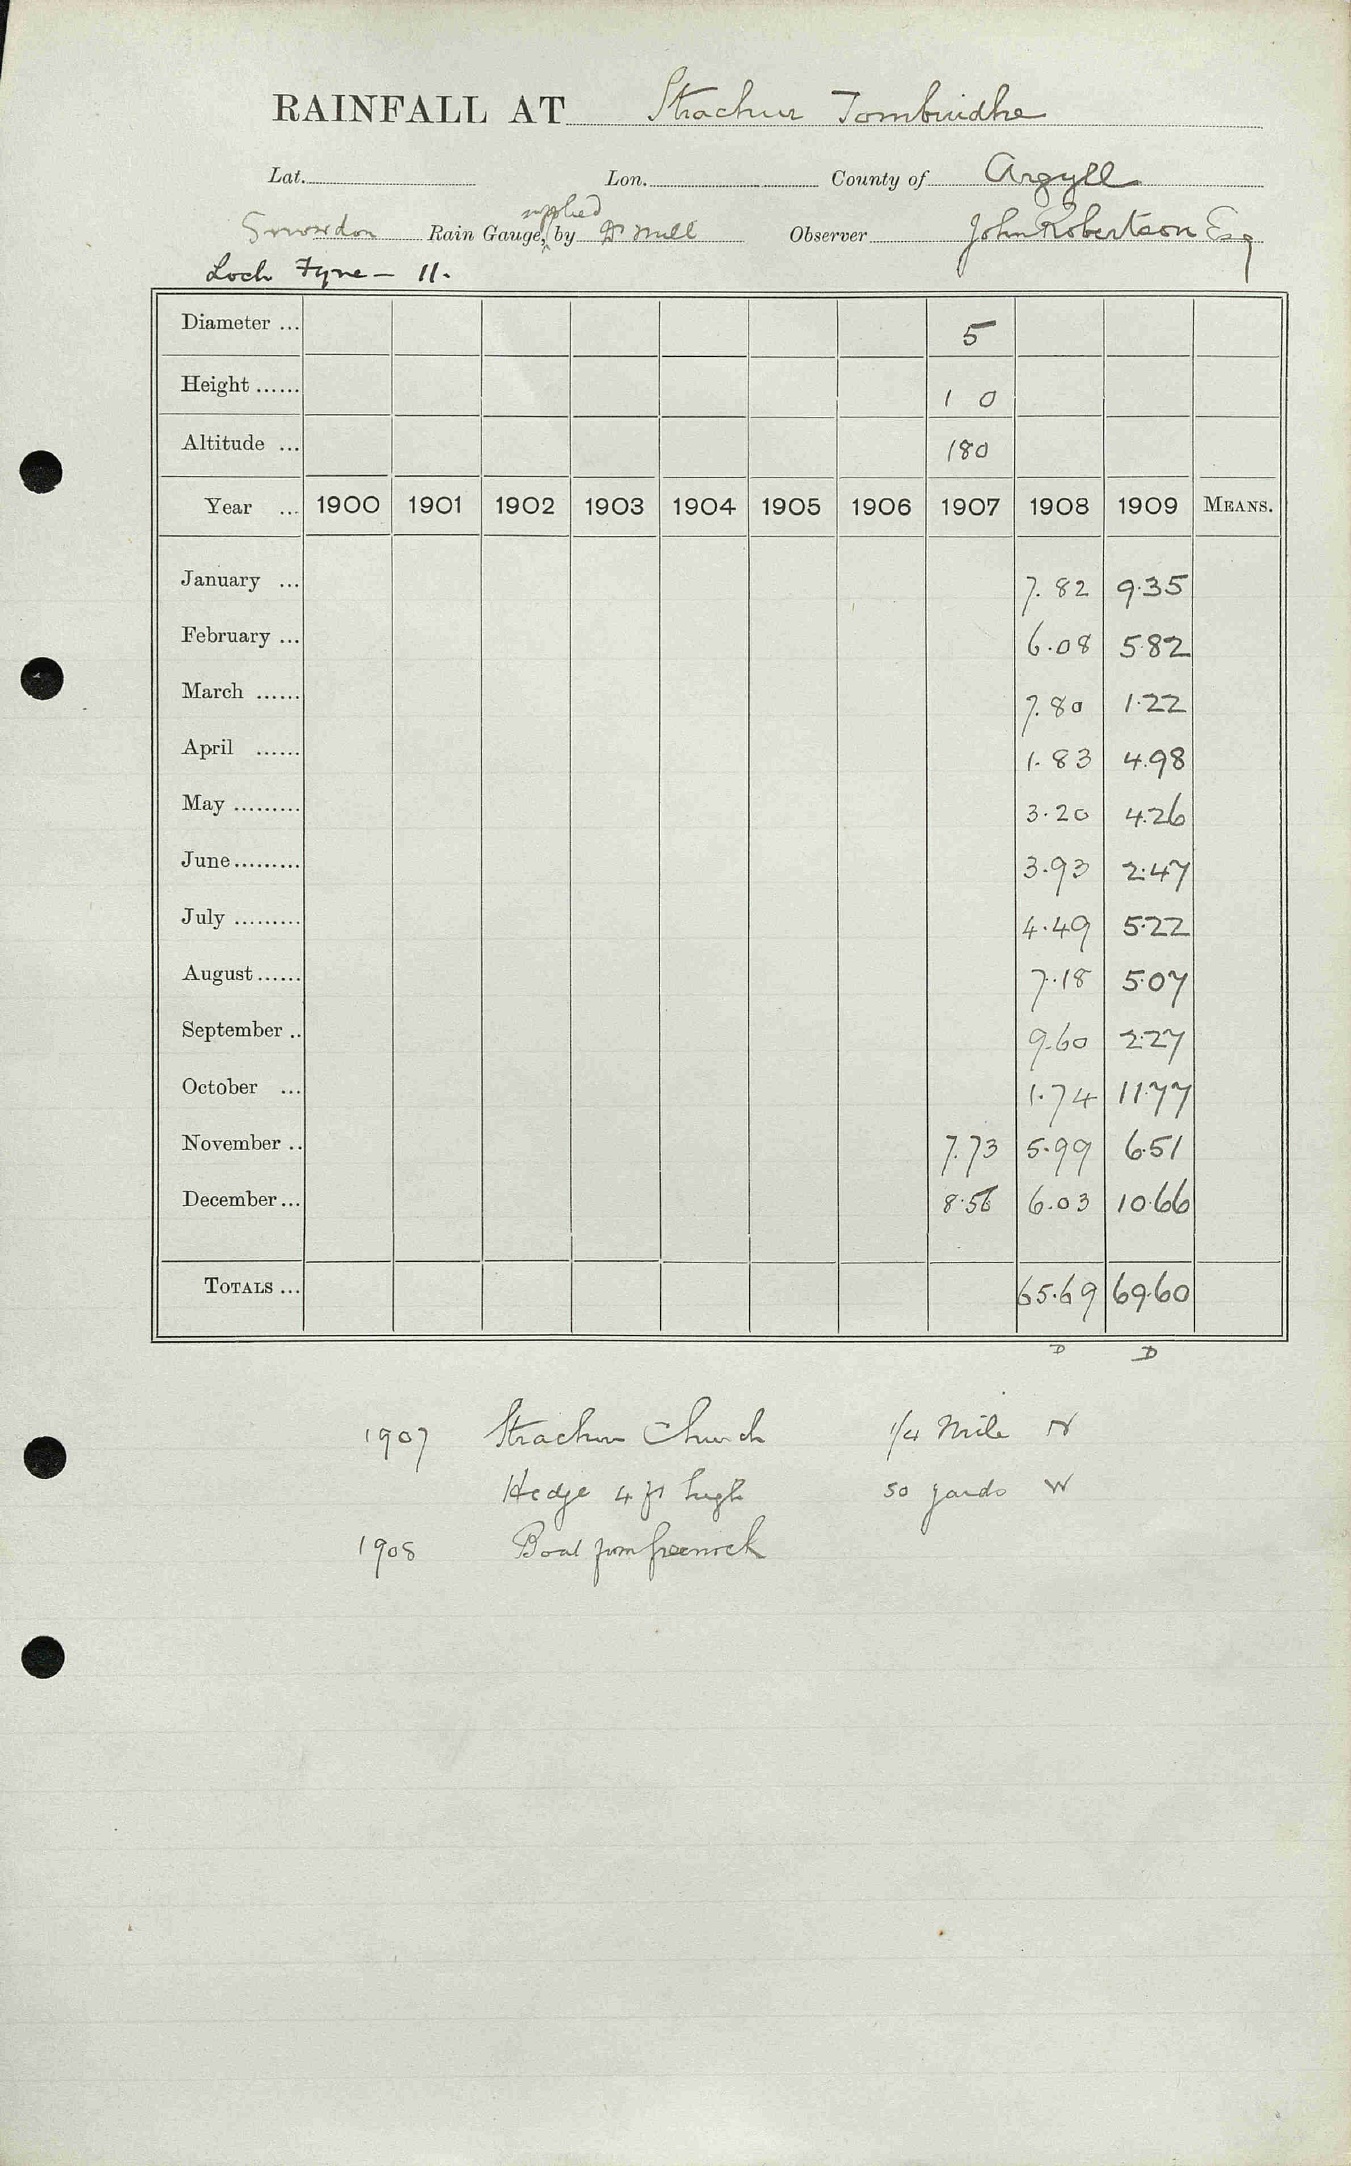 RAINFALL AT Strachur Tombuidhe
Lat. Lon. County of Argyll
supplied
Snowdon Rain Gauge, by Dr Mill Observer John Robertson Esq
Loch Fyne – 11.
Diameter ... 5
Height ...... 1 0
Altitude ... 180
Year ... 1900 1901 1902 1903 1904 1905 1906 1907 1908 1909 MEANS.
January ... 7.82 9.35
February ... 6.08 5.82
March ...... 7.80 1.22
April ...... 1.83 4.98
May ......... 3.20 4.26
June ......... 3.93 2.47
July ......... 4.49 5.22
August ...... 7.18 5.07
September .. 9.60 2.27
October ... 1.74 11.77
November .. 7.73 5.99 6.51
December ... 8.56 6.03 10.66
TOTALS ... 65.69 69.60
D D
1907 Strachur Church 1/4 Mile N
Hedge 4 ft high 50 yards W
1908 Boat from Greenock